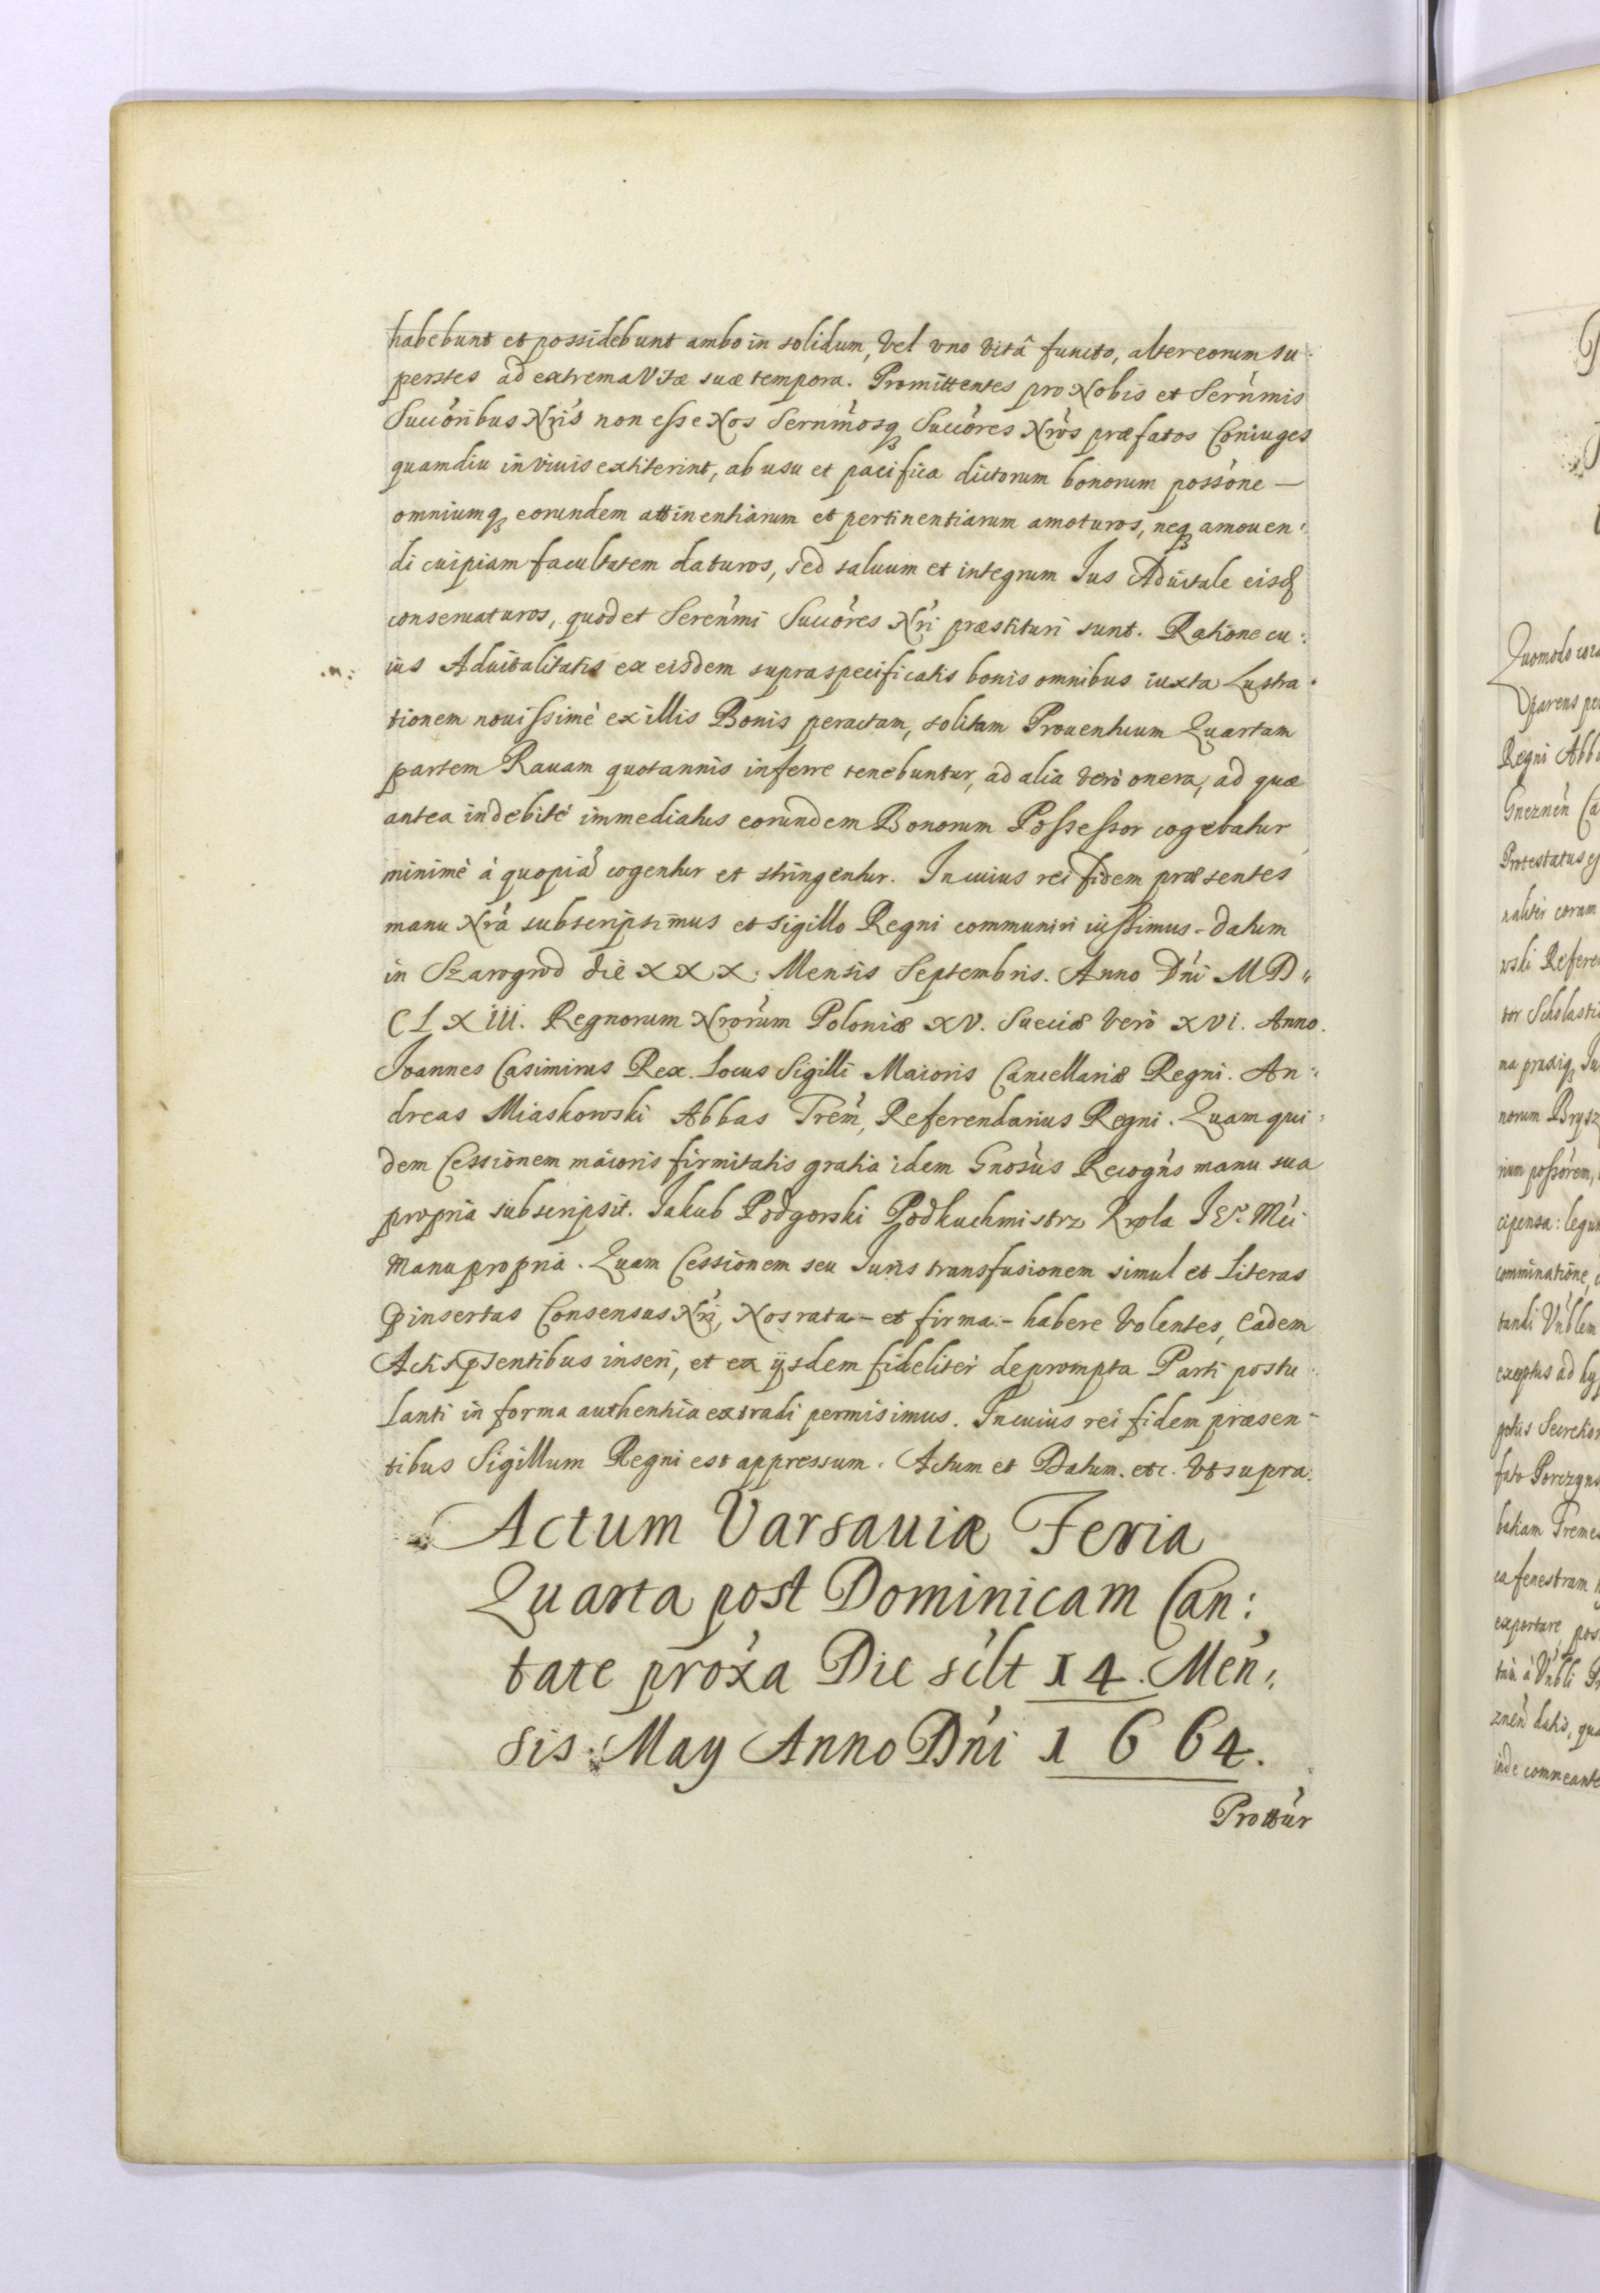 habebunt et possidebunt ambo in solidum, vel uno vitâ functo, alter eorum su-
perstes ad extrema Vitæ suæ tempora. Promittentes pro Nobis et Sernmis
Succoribus Nris non esse Nos Sernmosq Succores Nros præfatos Coniuges
quamdiu in viuis extiterint, ab usu et pacifica dictorum bonorum possone –
omniumq eorundem attinentiarum et pertinentiarum amoturos, neq amouen-
di cuipiam facultatem daturos, sed saluum et integrum Ius Aduitale eisd
conseruaturos, quod et Serenmi Succores Nri præstituri sunt. Ratione cu:
ius Aduitalitatis ex eisdem supraspecificatis bonis omnibus iuxta Lustra-
tionem nouissimè ex illis Bonis peractam, solitam Prouentuum Quartam
partem Rauam quotannis inferre tenebuntur, ad alia verò onera, ad quæ
antea indebitè immediatus eorundem Bonorum Possessor cogebatur
minimè à quopiã cogentur et stringentur. In cuius rei fidem præsentes
manu Nrã subscripsimus et sigillo Regni communiri iussimus. Datum
in Szarogrod die XXX. Mensis Septembris. Anno Dni MD"
CLXIII. Regnorum Nrorum Poloniæ XV. Sueciæ verò XVI. Anno.
Joannes Casimirus Rex. Locus Sigilli Maioris Cancellariæ Regni. An:
dreas Miaskowski Abbas Trem, Referendarius Regni. Quam qui-
dem Cessionem maioris firmitatis gratia idem Gnosus Recogns manu sua
propria subscripsit. Jakub Podgorski Podkuchmistrz Krola Je° Mci
Manu propria. Quam Cessionem seu Iuris transfusionem simul et Literas
pinsertas Consensus Nri, Nos rata – et firma – habere volentes, Eadem
Actis psentibus inseri, et ex ijsdem fideliter deprompta Parti postu-
lanti in forma authentica extradi permisimus. In cuius rei fidem præsen-
tibus Sigillum Regni est appressum. Actum et Datum. etc. vt supra.
Actum Varsauiæ Feria
Quarta post Dominicam Can:
tate proxa Die scilt 14. Men:
sis May Anno Dni 1664.
Prottur
Quomodo
parens
Regni
Gneznen
Protestatus
coram
tor
norum
rium possorem,
cipensa:
comminatione,
exceptus ad
batiam
ca fenestram
exportare,
inde